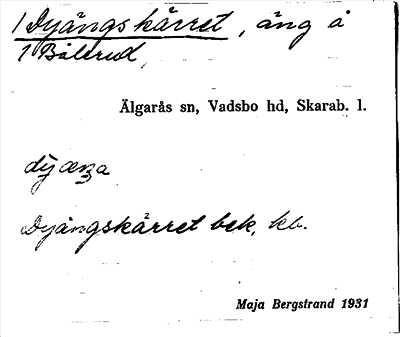 1 Dyängskärret, äng å
1 Bölerud,
Älgarås sn, Vadsbo hd, Skarab. l.
Dyängskärret bek. kb.
Maja Bergstrand 1931